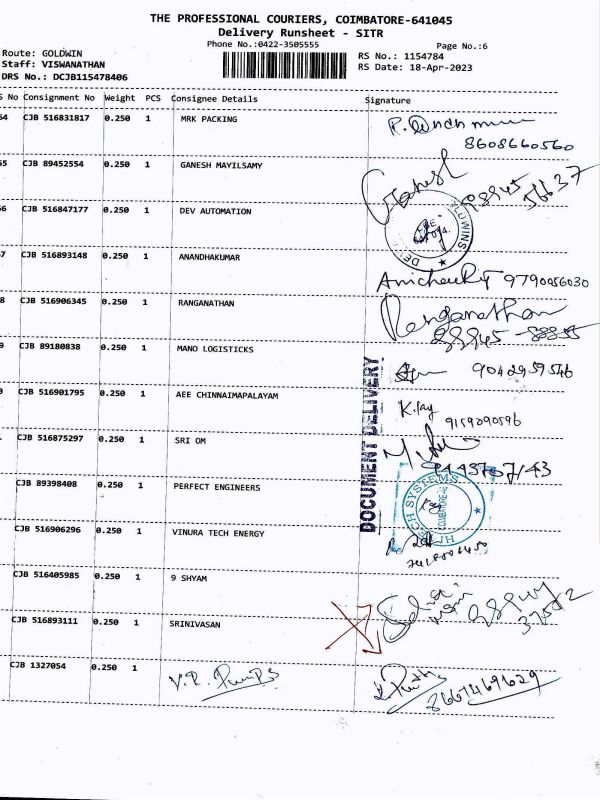 THE PROFESSIONAL COURIERS, COIMBATORE-641045
Delivery Runsheet - SITR
Phone No.:0422-3505555
Page No.:6
Route: GOLDWIN
Staff: VISWANATHAN
DRS No.: DCJB115478406
RS No.: 1154784
RS Date: 18-Apr-2023
S No Consignment No Weight PCS Consignee Details Signature
64 CJB 516831817 0.250 1 MRK PACKING
8608660560
65 CJB 89452554 0.250 1 GANESH MAYILSAMY
Ganesh 98945 56637
66 CJB 516847177 0.250 1 DEV AUTOMATION
67 CJB 516893148 0.250 1 ANANDHAKUMAR
9790056030
8 CJB 516906345 0.250 1 RANGANATHAN
Ranganathan
98945-88855
9 CJB 89180838 0.250 1 MANO LOGISTICKS
9042959546
CJB 516901795 0.250 1 AEE CHINNAIMAPALAYAM
K.jay 9159090596
CJB 516875297 0.250 1 SRI OM
DOCUMENT DELIVERY
CJB 89398408 0.250 1 PERFECT ENGINEERS
HITECH SYSTEMS
CJB 516906296 0.250 1 VINURA TECH ENERGY
CJB 516405985 0.250 1 9 SHYAM
CJB 516893111 0.250 1 SRINIVASAN
CJB 1327054 0.250 1 V.R. Pumps